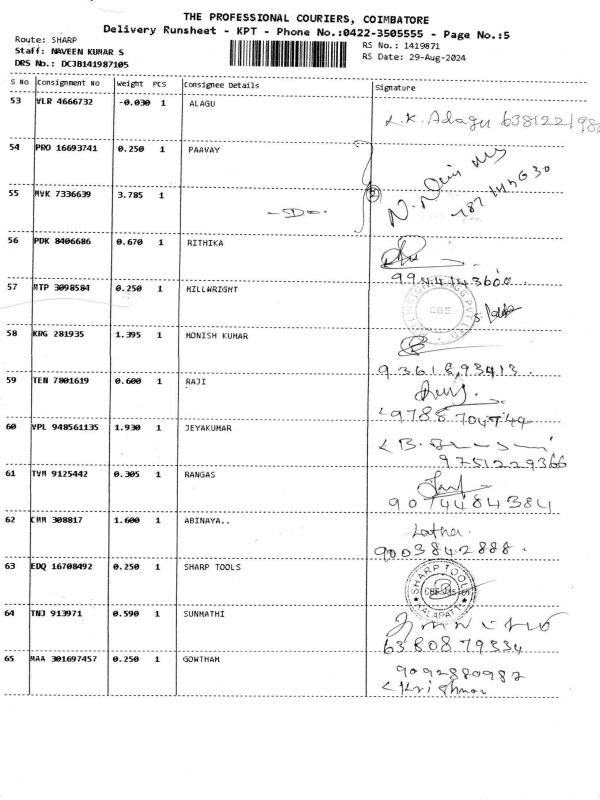 THE PROFESSIONAL COURIERS, COIMBATORE
Delivery Runsheet - KPT - Phone No.:0422-3505555 - Page No.:5
Route: SHARP
RS No.: 1419871
Staff: NAVEEN KUMAR S
RS Date: 29-Aug-2024
DRS No.: DCJB141987105
S No Consignment No Weight PCS Consignee Details Signature
53 VLR 4666732 -0.030 1 ALAGU
K.K. Alagu
54 PRO 16693741 0.250 1 PAAVAY
55 MVK 7336639 3.785 1 -SD-
2
56 PDK 8406686 0.670 1 RITHIKA
9944143600.
57 MTP 3098584 0.250 1 MILLWRIGHT
CBE
58 KRG 281935 1.395 1 MONISH KUMAR
9361893413.
59 TEN 7801619 0.600 1 RAJI
60 VPL 948561135 1.930 1 JEYAKUMAR
9751229366
61 TVM 9125442 0.305 1 RANGAS
9074484384
62 CMM 308817 1.600 1 ABINAYA..
Latha.
9003842888.
63 EDQ 16708492 0.250 1 SHARP TOOLS
SHARP TOOLS
KALAPATTI
64 TNJ 913971 0.590 1 SUNMATHI
6380879334
65 MAA 301697457 0.250 1 GOWTHAM
9092880982
Krishnan